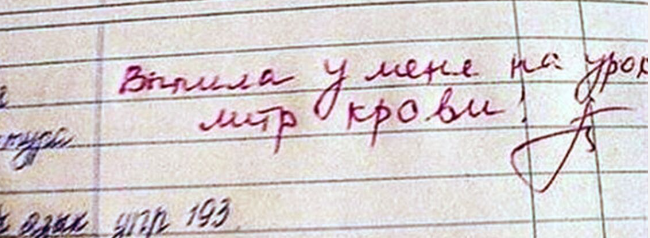 Выпила у мене на урок
литр крови!
тура
язык упр 193